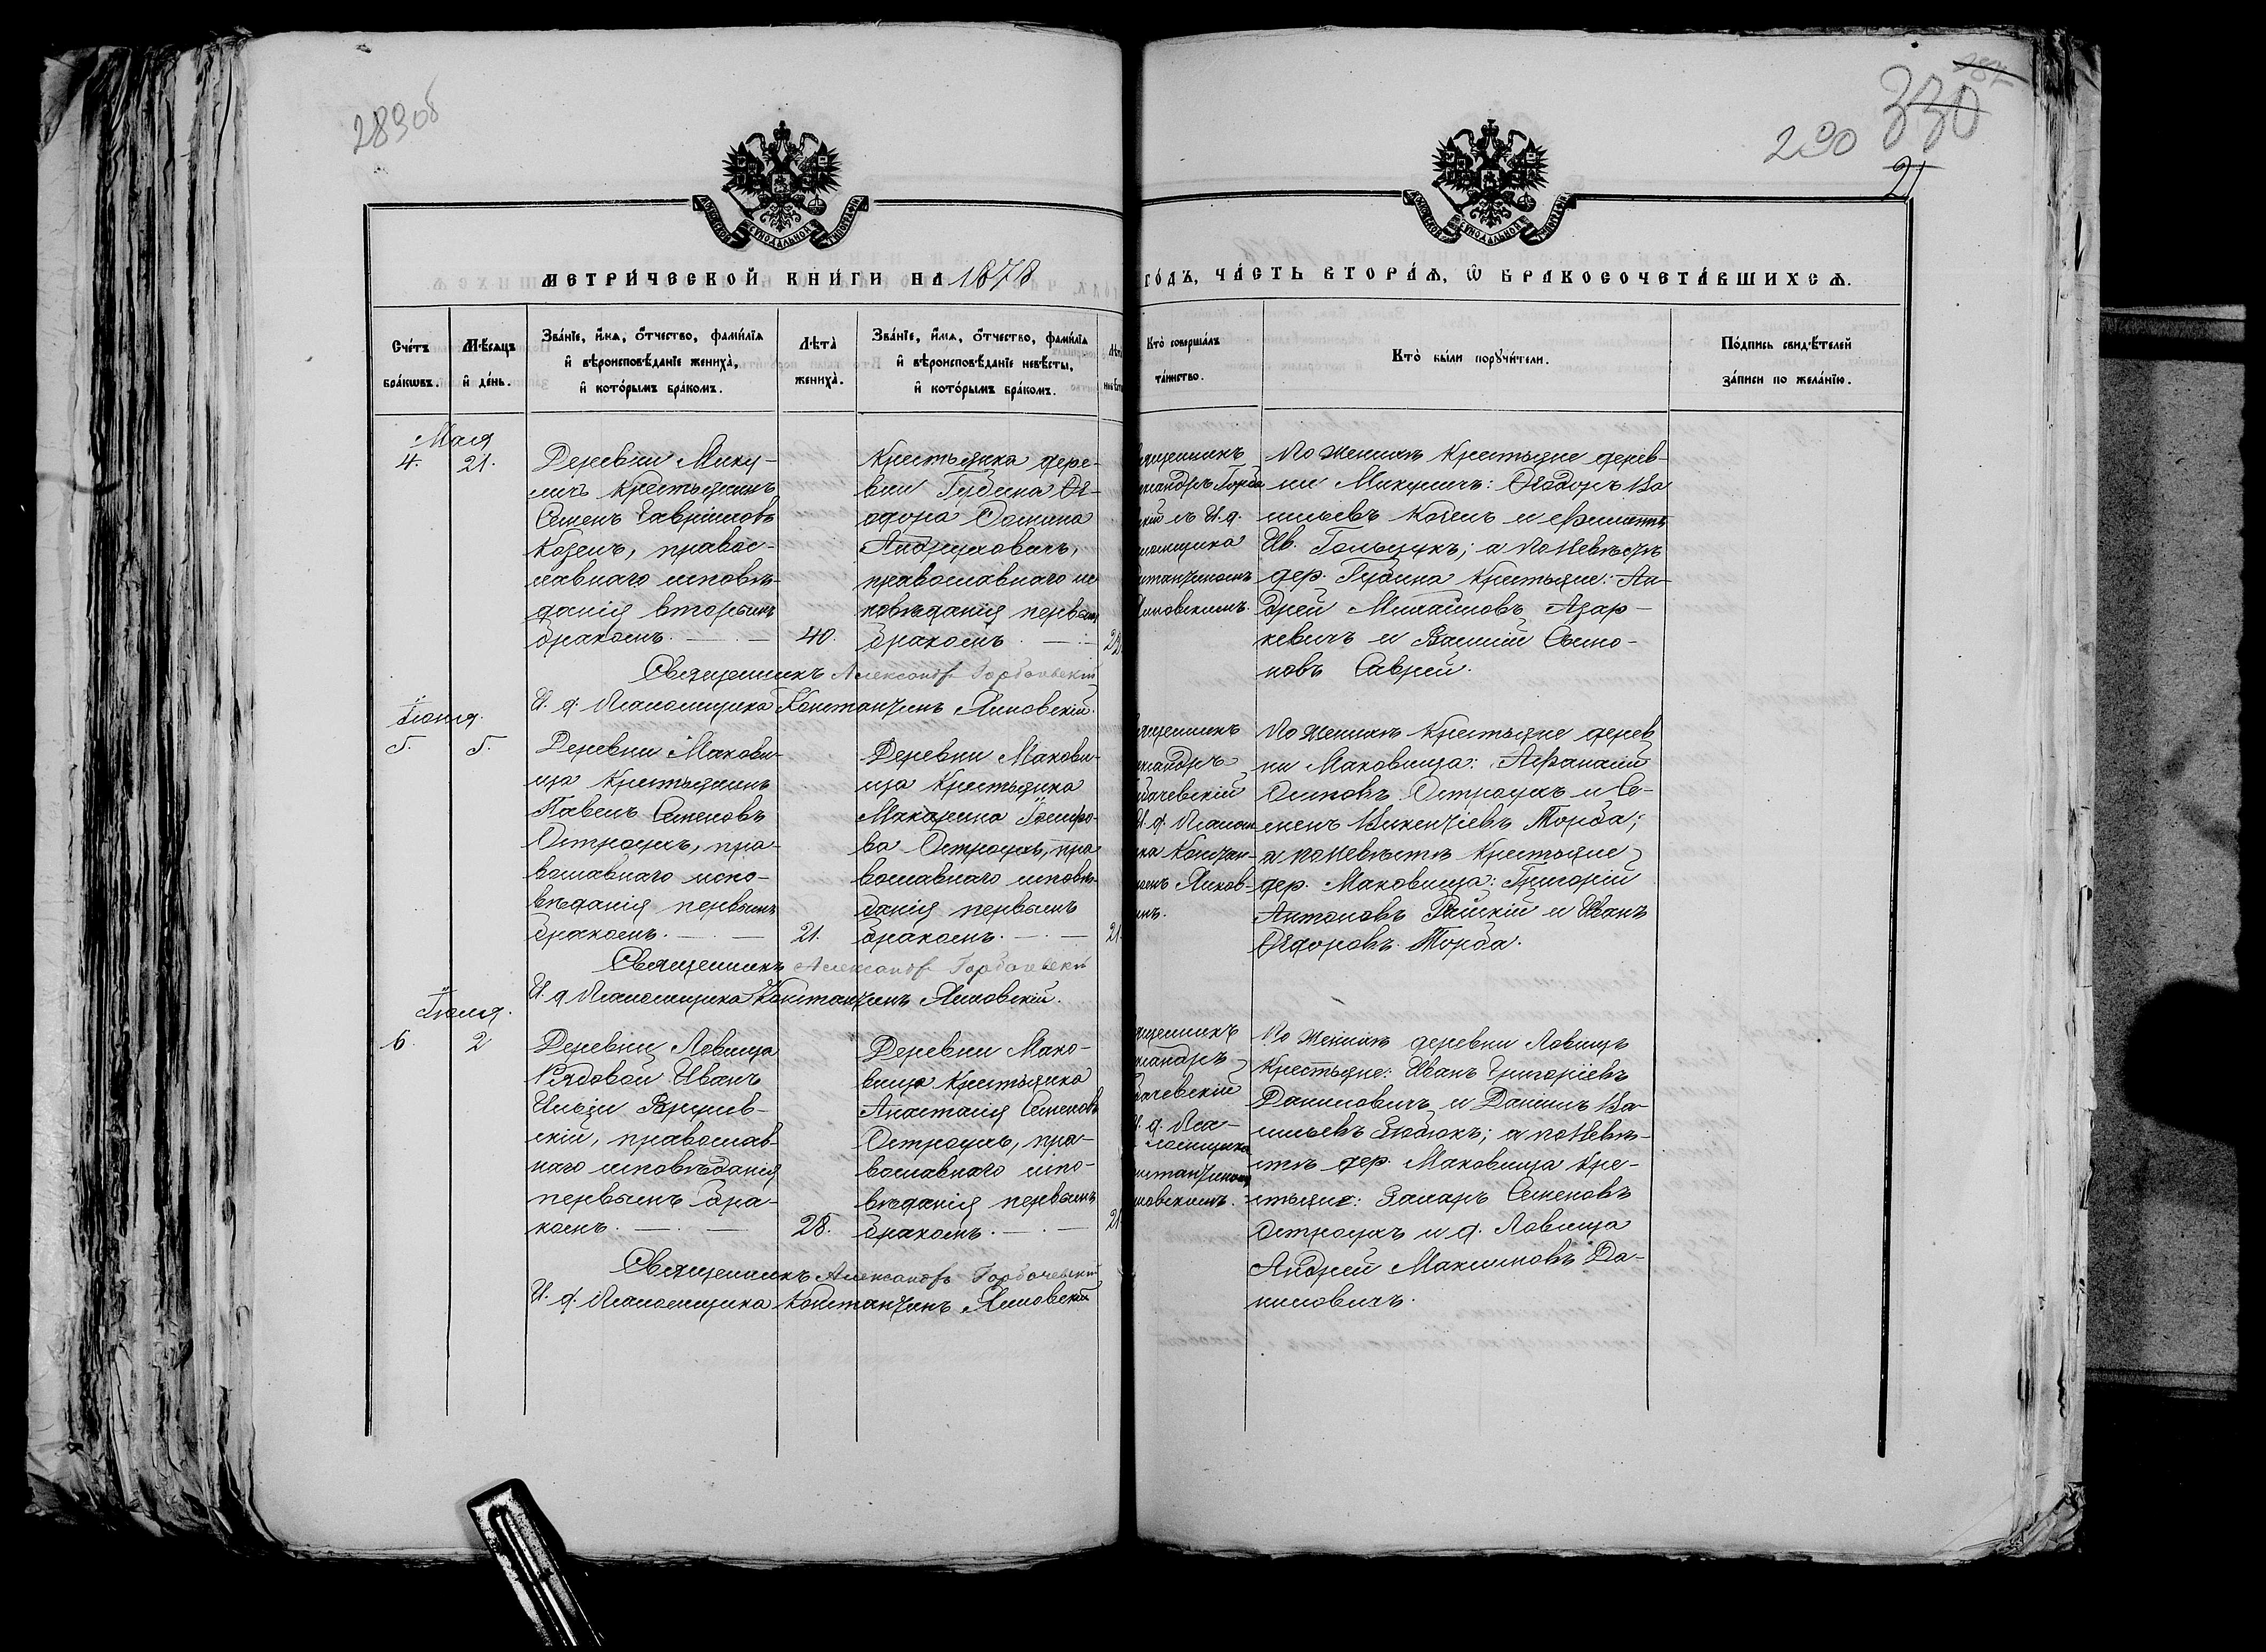 289об
290
330
21
МЕТРИ́ЧЕСКОЙ КНИ́ГИ НА 1878
ГО́ДЪ, ЧА́СТЬ ВТОРА́Я, Ѿ БРАКОСОЧЕТА́ВШИХСЯ.
Сче́тъ бра́кѡвъ.
Мѣ́сяцъ и де́нь.
Зва́нїе, и́мя, ѻ́тчество, фами́лїя
и вѣроисповѣ́данїе жениха̀,
и кото́рымъ бра́комъ.
Лѣ́та̀
жениха̀.
Зва́нїе, и́мя, ѻ́тчество, фами́лїя
и вѣроисповѣ́данїе невѣ́сты,
и кото́рымъ бра́комъ.
Кто̀ соверша́лъ
та́инство.
Кто̀ бы́ли порꙋчи́тели.
По́дпись свидѣ́телей
за́писи по жела́нїю.
Мая
4. 21.
Деревни Мику-
личъ Крестьянинъ
Семенъ Гавріиловъ
Козелъ, правос-
лавнаго исповѣ-
данія вторымъ
бракомъ. 40.
Крестьянка дере-
вни Губина Ѳе-
одора Фомина
православнаго ис
повѣданія первымъ
бракомъ
Священникъ Александръ Горбачевскій
И. д. Псаломщика Константинъ Яновскій.
По Женихѣ Крестьяне дерев-
ни Микуличъ: Ѳеодоръ Ва
сильевъ Козелъ и
Ив. ; а по Невѣстѣ
дер. Губина Крестьяне: Ан-
дрей Михайловъ Азар-
кевичъ и Василій Симо-
новъ Саврей.
Іюня.
5. 5.
Деревни Макови-
ща Крестьянинъ
Павелъ Семеновъ
Остроухъ, пра-
вославнаго испо-
вѣданія первымъ
бракомъ. 21.
Деревни Макови-
ща Крестьянка
Макарина
ва Остроухъ, пра
вославнаго исповѣ-
данія первымъ
бракомъ. 21.
Священникъ Александръ Горбачевскій
И. д Псаломщика Константинъ Яновскій.
По Женихѣ Крестьяне дерев
ни Маковища: Аѳанасій
Осиповъ Остроухъ и Се-
менъ Викентіевъ Торба;
а по Невѣстѣ Крестьяне
дер. Маковища: Григорій
Антоновъ и Иванъ
Ѳедоровъ Торба.
Іюля.
6. 2
Деревни Ловища
Рядовой Иванъ
Ильи
скій, православ-
наго исповѣданія
первымъ бра-
комъ. 28.
Деревни Мако-
вища Крестьянка
Анастасія Семенов
Остроухъ, пра-
вославнаго испо-
вѣданія первымъ
бракомъ. 21
Священникъ Александръ Горбачевскій
И. д. Псаломщика Константинъ Яновскій
По Женихѣ деревни Ловищъ
Крестьяне: Иванъ Григоріевъ
Даниловичъ и Даніилъ Ва-
сильевъ ; а по Невѣ-
стѣ дер. Маковища Кре-
стьяне: Захаръ Семеновъ
Остроухъ и д. Ловища
Андрей Максимовъ Да-
ниловичъ.